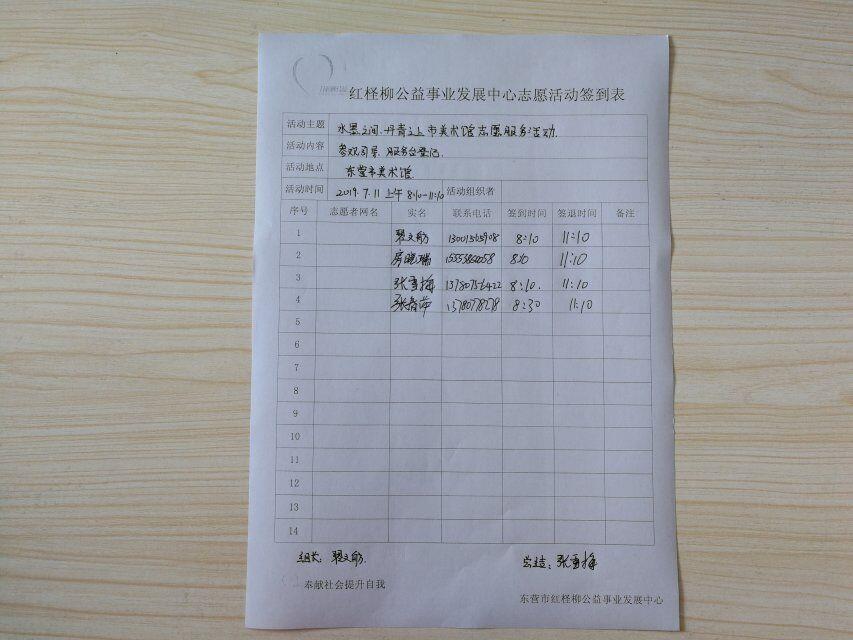 红柽柳公益事业发展中心志愿活动签到表
活动主题 水墨之间、丹青之上市美术馆志愿服务活动.
活动内容 参观引导、服务台登记.
活动地点 东营市美术馆
活动时间 2019.7.11 上午 8:10-11:10 活动组织者
序号 志愿者网名 实名 联系电话 签到时间 签退时间 备注
1 翟文舫 13001565908 8:10 11:10
2 房晓瑞 8:10 11:10
3 张雪梅 13780756422 8:10. 11:10
4 张春萍 8:30 11:10
5
6
7
8
9
10
11
12
13
14
组长: 翟文舫. 张雪梅
奉献社会提升自我
东营市红柽柳公益事业发展中心